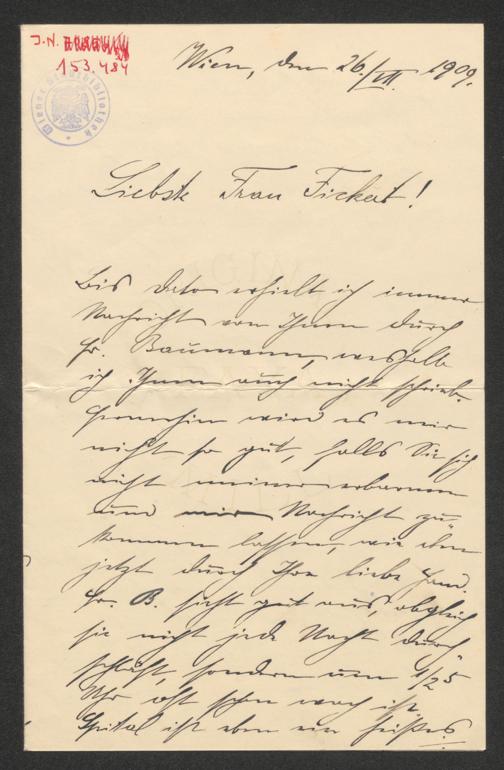 J.N.
153.484
Wiener Stadtbibliothek
Wien, den 26./VII. 1909.
Liebste Frau Fickert!
Bis dato erhielt ich immer
Nachricht von Ihnen durch
Fr. Baumann, weshalb
ich Ihnen auch nicht schrieb.
Fernerhin wird es mir
nicht so gut, falls Sie sich
nicht meiner erbarmen
und mir Nachricht zu-
kommen lassen, wie eben
jetzt durch Ihre liebe Hand.
Fr. B. sieht gut aus, obgleich
sie nicht jede Nacht durch-
schläft, sondern um 1/2 5
Uhr oft schon wach ist.
Spital ist eben ein heißes